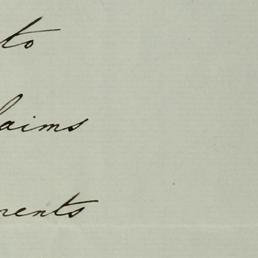 to
laims
ments